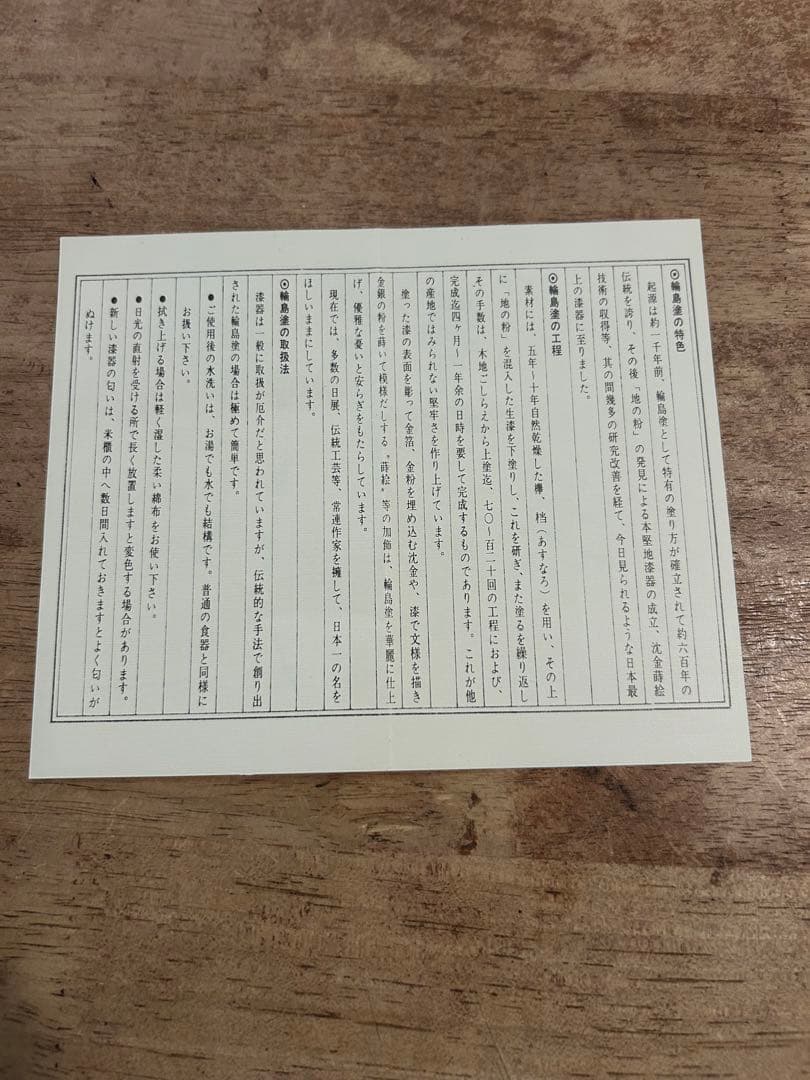 ◉輪島塗の特色
起源は約一千年前、輪島塗として特有の塗り方が確立されて約六百年の
伝統を誇り、その後「地の粉」の発見による本堅地漆器の成立、沈金蒔絵
技術の収得等、其の間幾多の研究改善を経て、今日見られるような日本最
上の漆器に至りました。
◉輪島塗の工程
素材には、五年〜十年自然乾燥した欅、档(あすなろ)を用い、その上
に「地の粉」を混入した生漆を下塗りし、これを研ぎ、また塗るを繰り返し
その手数は、木地ごしらえから上塗迄、七〇〜百二十回の工程におよび、
完成迄四ヶ月〜一年余の日時を要して完成するものであります。これが他
の産地ではみられない堅牢さを作り上げています。
塗った漆の表面を彫って金箔、金粉を埋め込む沈金や、漆で文様を描き
金銀の粉を蒔いて模様だしする〝蒔絵〟等の加飾は、輪島塗を華麗に仕上
げ、優雅な憂いと安らぎをもたらしています。
現在では、多数の日展、伝統工芸等、常連作家を擁して、日本一の名を
ほしいままにしています。
◉輪島塗の取扱法
漆器は一般に取扱が厄介だと思われていますが、伝統的な手法で創り出
された輪島塗の場合は極めて簡単です。
●ご使用後の水洗いは、お湯でも水でも結構です。普通の食器と同様に
お扱い下さい。
●拭き上げる場合は軽く湿した柔い綿布をお使い下さい。
●日光の直射を受ける所で長く放置しますと変色する場合があります。
●新しい漆器の匂いは、米櫃の中へ数日間入れておきますとよく匂いが
ぬけます。